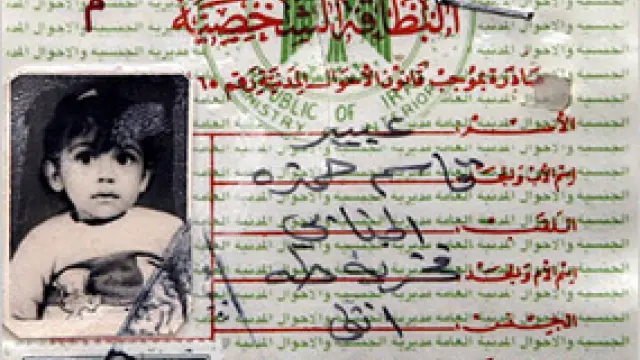 م
البطاقة الشخصية
صادرة بموجب قانون الأحوال المدنية رقم ٦٥
REPUBLIC OF IR
MINISTRY INTERIOR
الاسم عبير
اسم الأب والجد قاسم حمزه
اللقب الجنابي
اسم الأم والجد فخرية طه
الجنس انثى
الجنسية والاحوال المدنية مديرية الجنسية والاحوال المدنية العامة